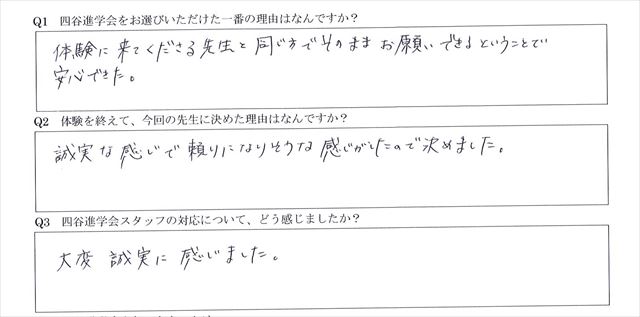 Q1 四谷進学会をお選びいただけた一番の理由はなんですか？
体験に来てくださる先生と同じ方でそのままお願いできるということで
安心できた。
Q2 体験を終えて、今回の先生に決めた理由はなんですか？
誠実な感じで頼りになりそうな感じがしたので決めました。
Q3 四谷進学会スタッフの対応について、どう感じましたか？
大変 誠実に 感じました。